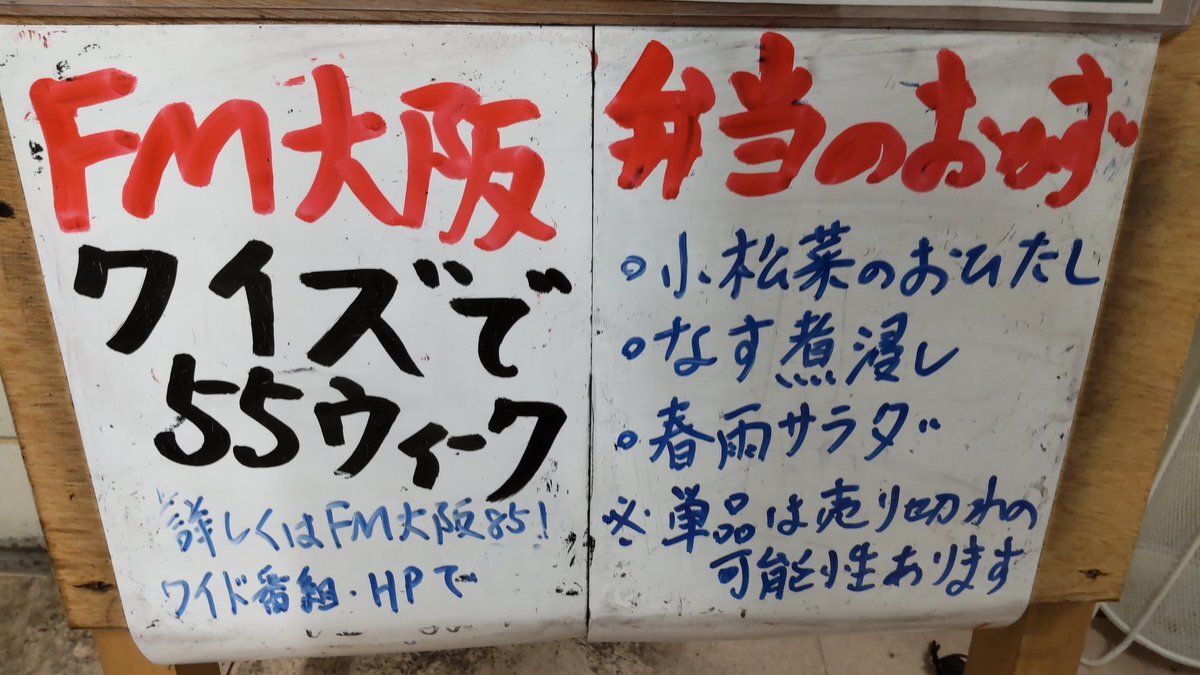 FM大阪
ワイズで
55ウィーク
詳しくはFM大阪85!
ワイド番組・HPで
弁当のおかず
○小松菜のおひたし
○なす煮浸し
○春雨サラダ
※単品は売り切れの
可能性あります